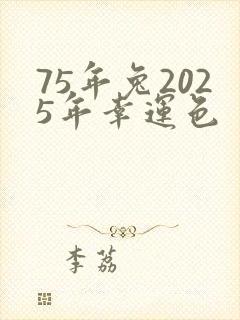 75年兔202
5年幸運色
李荔